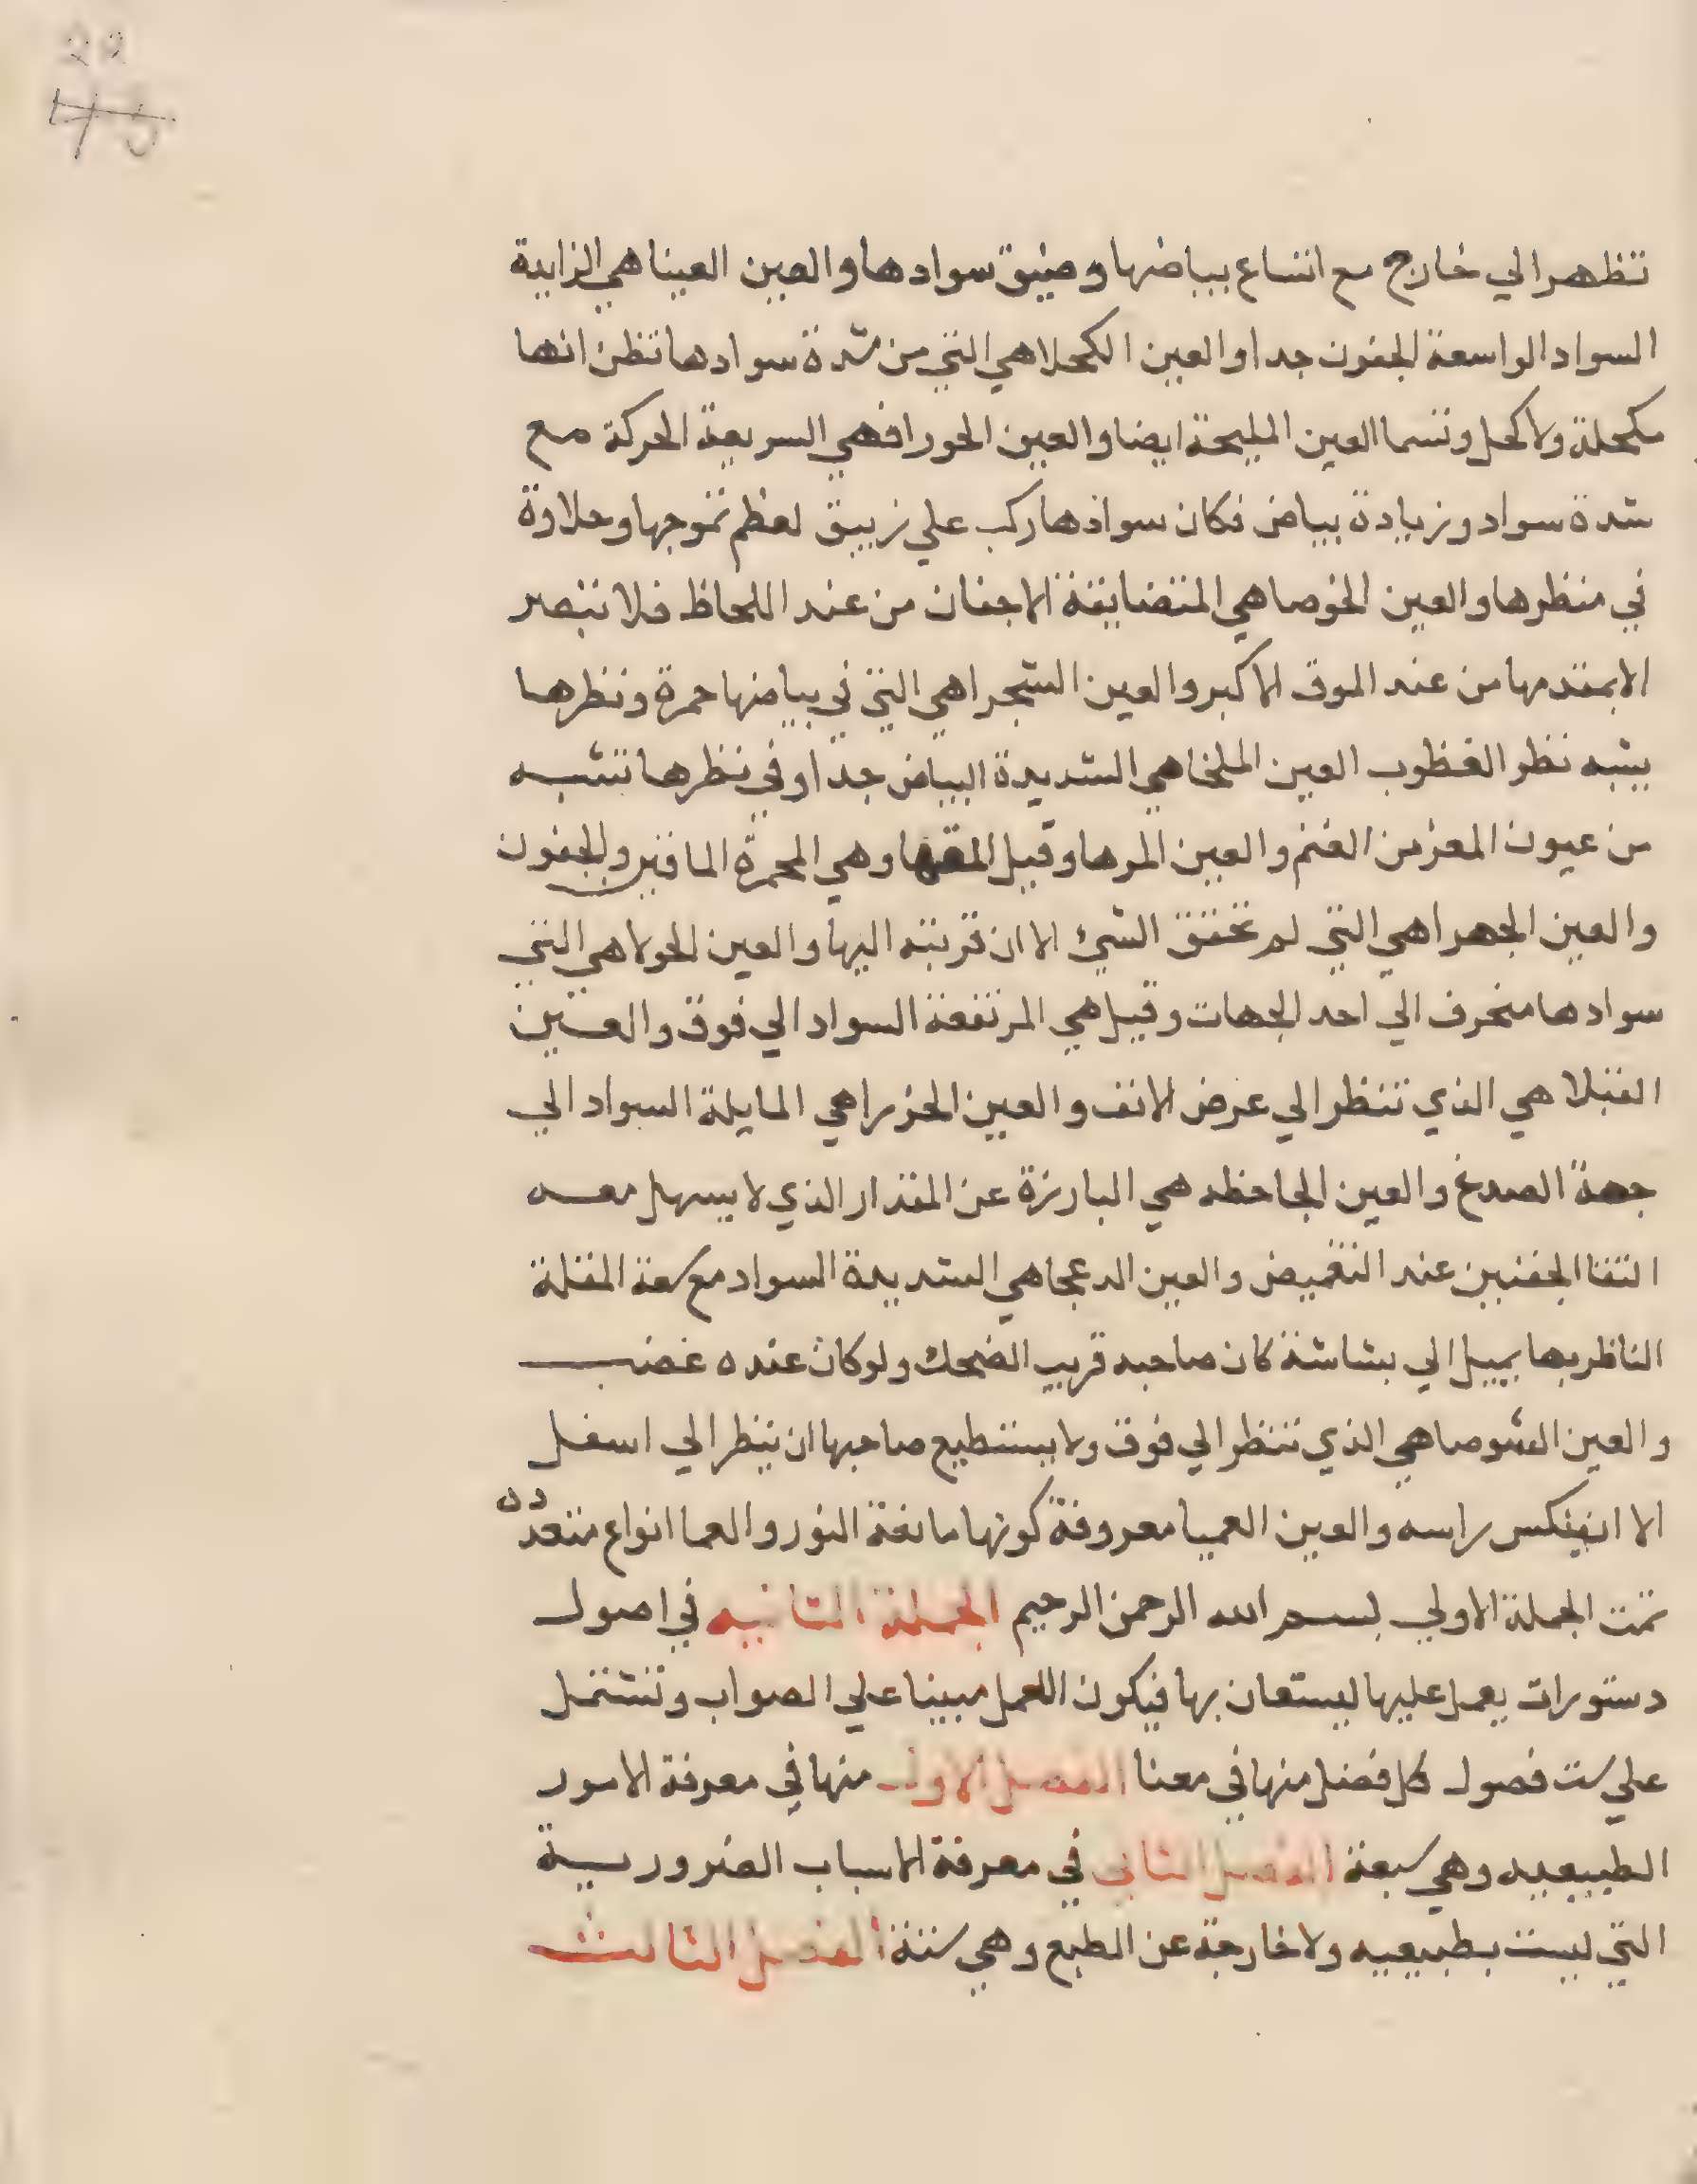 28
تظهر الي خارج مع اتساع بياضها وضيق سوادها والعين العينا هي الزايدة
السواد الواسعة الجفون جدا والعين الكحلا هي التي من شدة سوادها تظن انها
مكحلة ولا كحل وتسما العين المليحة ايضا والعين الحورا فهي السريعة الحركة مع
شدة سواد وزيادة بياض فكان سوادها ركب علي زيبق لعظم تموجها وحلاوة
في منظرها والعين الخوصا هي المتضايقة الاجفان من عند اللحاظ فلا تبصر
الا بمقدمها من عند الموق الاكبر والعين الشجرا هي التي في بياضها حمرة ونظرها
يشبه نظر الغظوب العين الملحا هي الشديدة البياض جدا وفي نظرها تشبه
من عيون المعز من الغنم والعين المرها وقيل المقها وهي المحمرة الماقين والجفون
والعين الجهرا هي التي لم تحقق الشيء الا ان قربته اليها والعين الحولا هي التي
سوادها منحرف الي احد الجهات وقيل هي المرتفعة السواد الي فوق والعين
القبلا هي الذي تنظر الي عرض الانف والعين الخزرا هي المايلة السواد الي
جهة الصدغ والعين الجاحظه هي البارزة عن المقدار الذي لا يسهل معه
التقا الجفنين عند التغميض والعين الدعجا هي الشديدة السواد مع سعة المقلة
الناظر بها يميل الي بشاشة كان صاحبه قريب الضحك ولو كان عنده غضب
والعين الشوصا هي الذي تنظر الي فوق ولا يستطيع صاحبها ان ينظر الي اسفل
الا ان ينكس راسه والعين العميا معروفة كونها مانعة النور والعما انواع متعدده
تمت الجملة الاولي بسم الله الرحمن الرحيم الجملة الثانيه في اصول
دستورات يعمل عليها ليستعان بها فيكون العمل مبينا علي الصواب وتشتمل
علي ست فصول كل فصل منها في معنا الفصل الاول منها في معرفة الامور
الطبيعيه وهي سبعة الفصل الثاني في معرفة الاسباب الضرورية
التي ليست بطبيعيه ولا خارجة عن الطبع وهي ستة الفصل الثالث